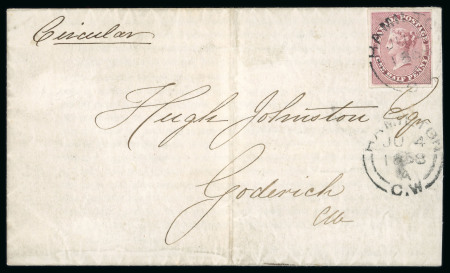 Circular
HAM
POSTAGE
HALF PENNY
Hugh Johnston Esqr
HAMILTON
JU 4
1858
C.W.
Goderich
CW